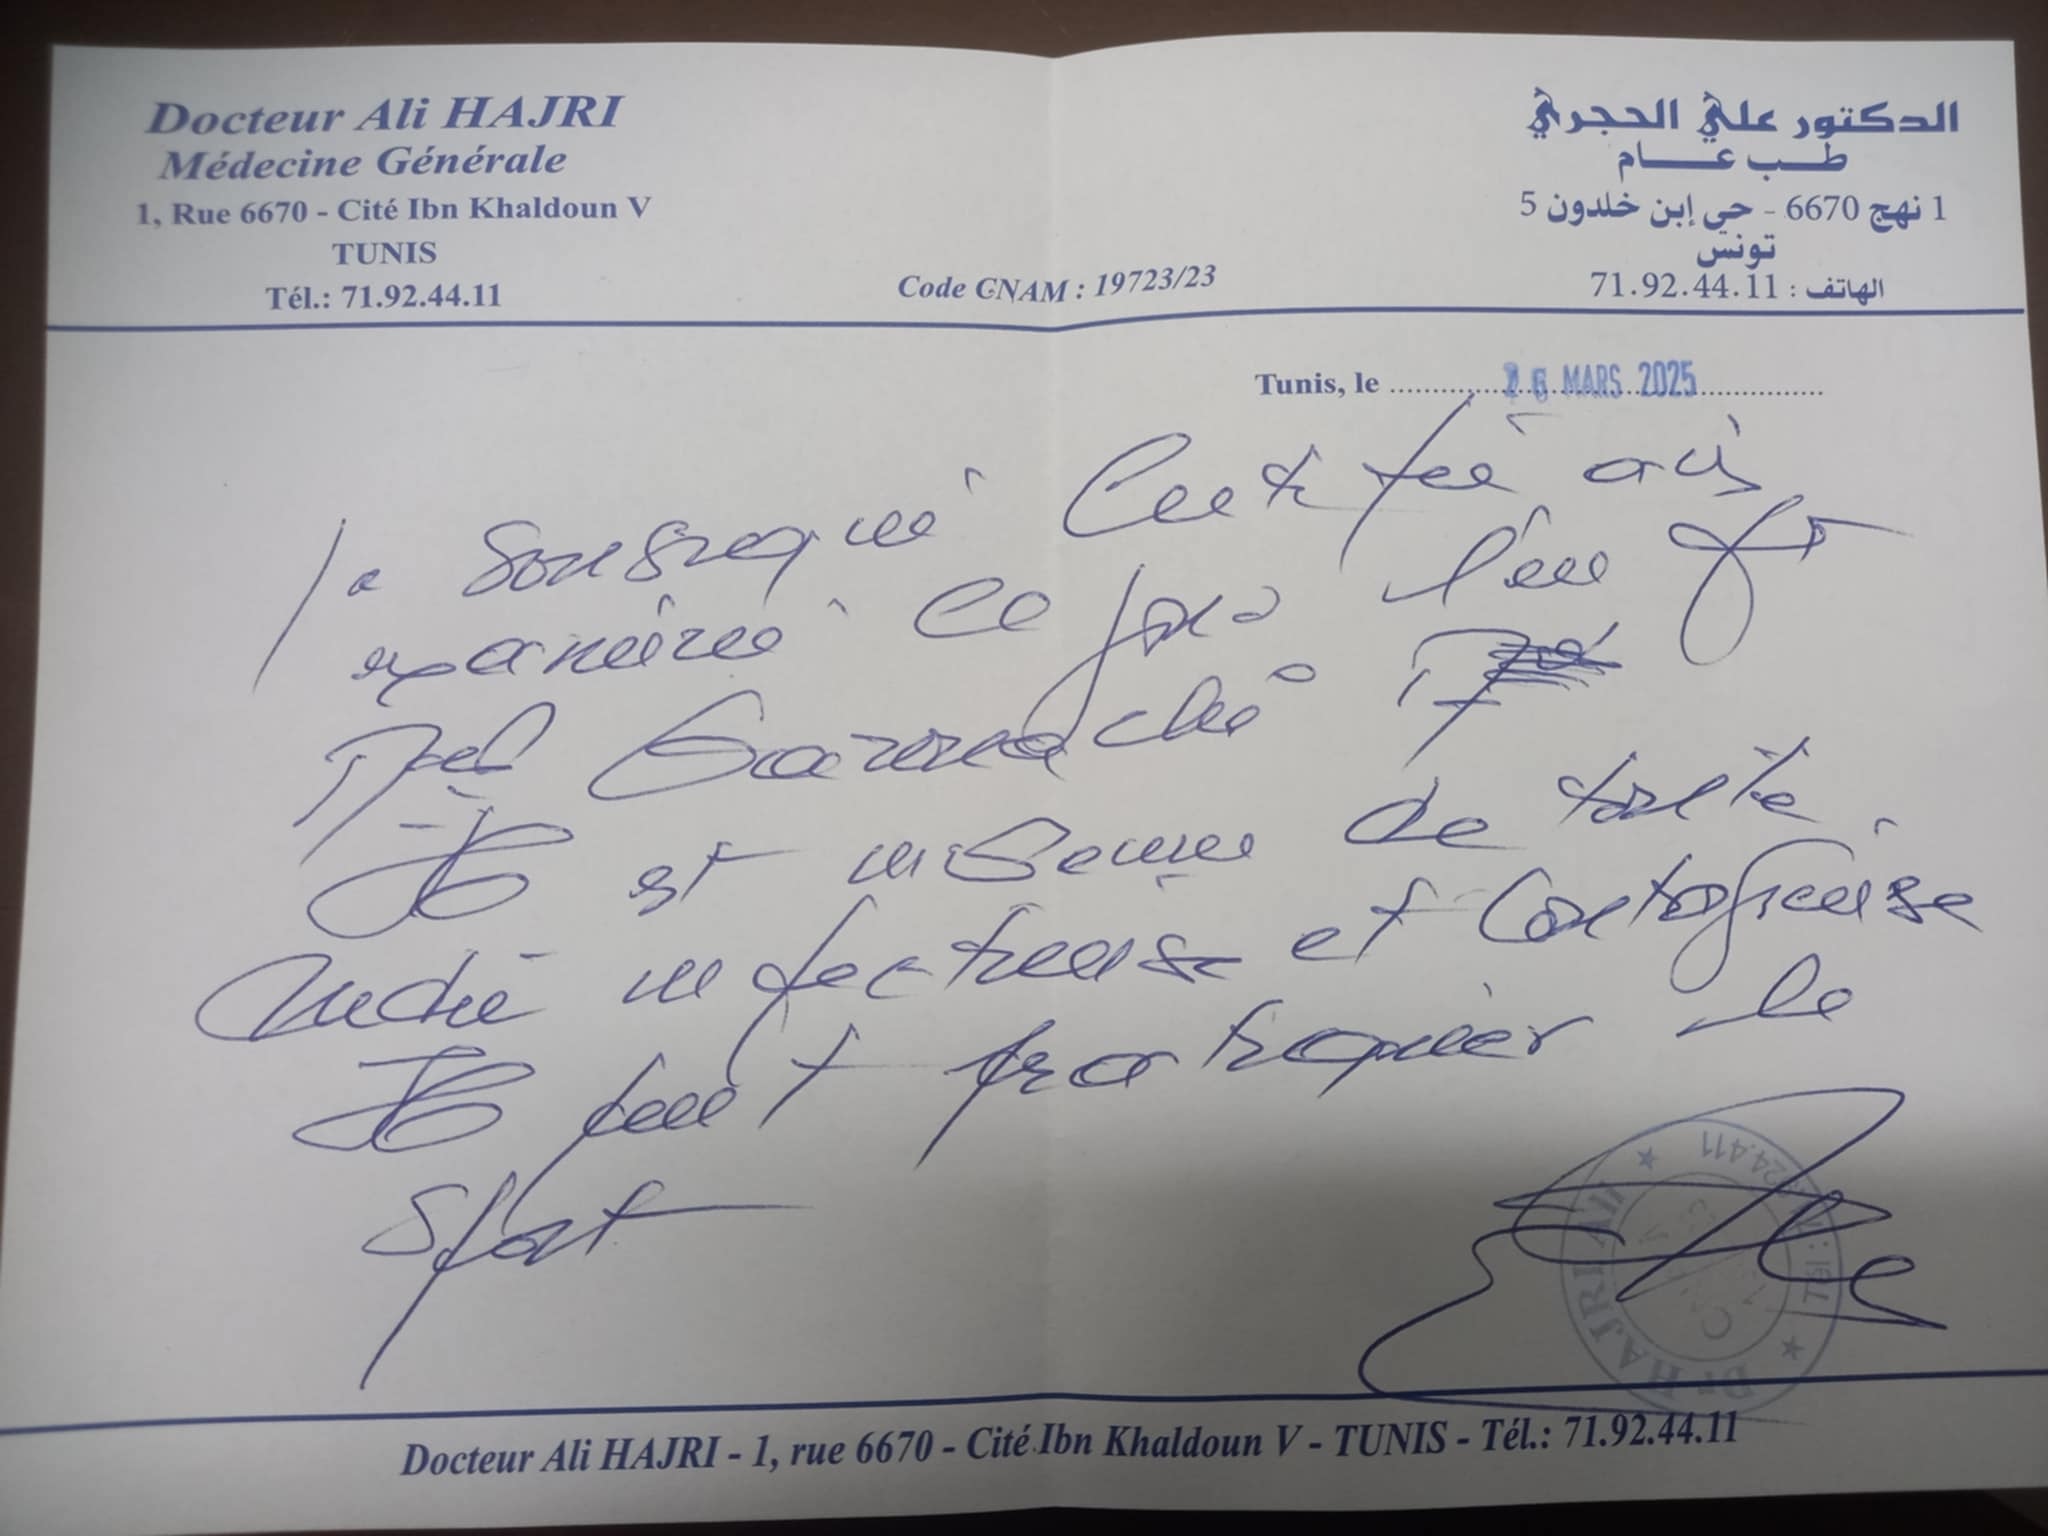 Docteur Ali HAJRI
Médecine Générale
1, Rue 6670 - Cité Ibn Khaldoun V
TUNIS
Tél.: 71.92.44.11
Code CNAM : 19723/23
الدكتور علي الحجري
طب عام
1 نهج 6670 - حي إبن خلدون 5
تونس
الهاتف : 71.92.44.11
Tunis, le 26 MARS 2025
Je soussigné Certifie avoir
examiné ce jour l'enft
Il est indemne de toute
infectieuse et contagieuse
Il peut pratiquer le
Sport
Dr HAJRI Ali
Docteur Ali HAJRI - 1, rue 6670 - Cité Ibn Khaldoun V - TUNIS - Tél.: 71.92.44.11